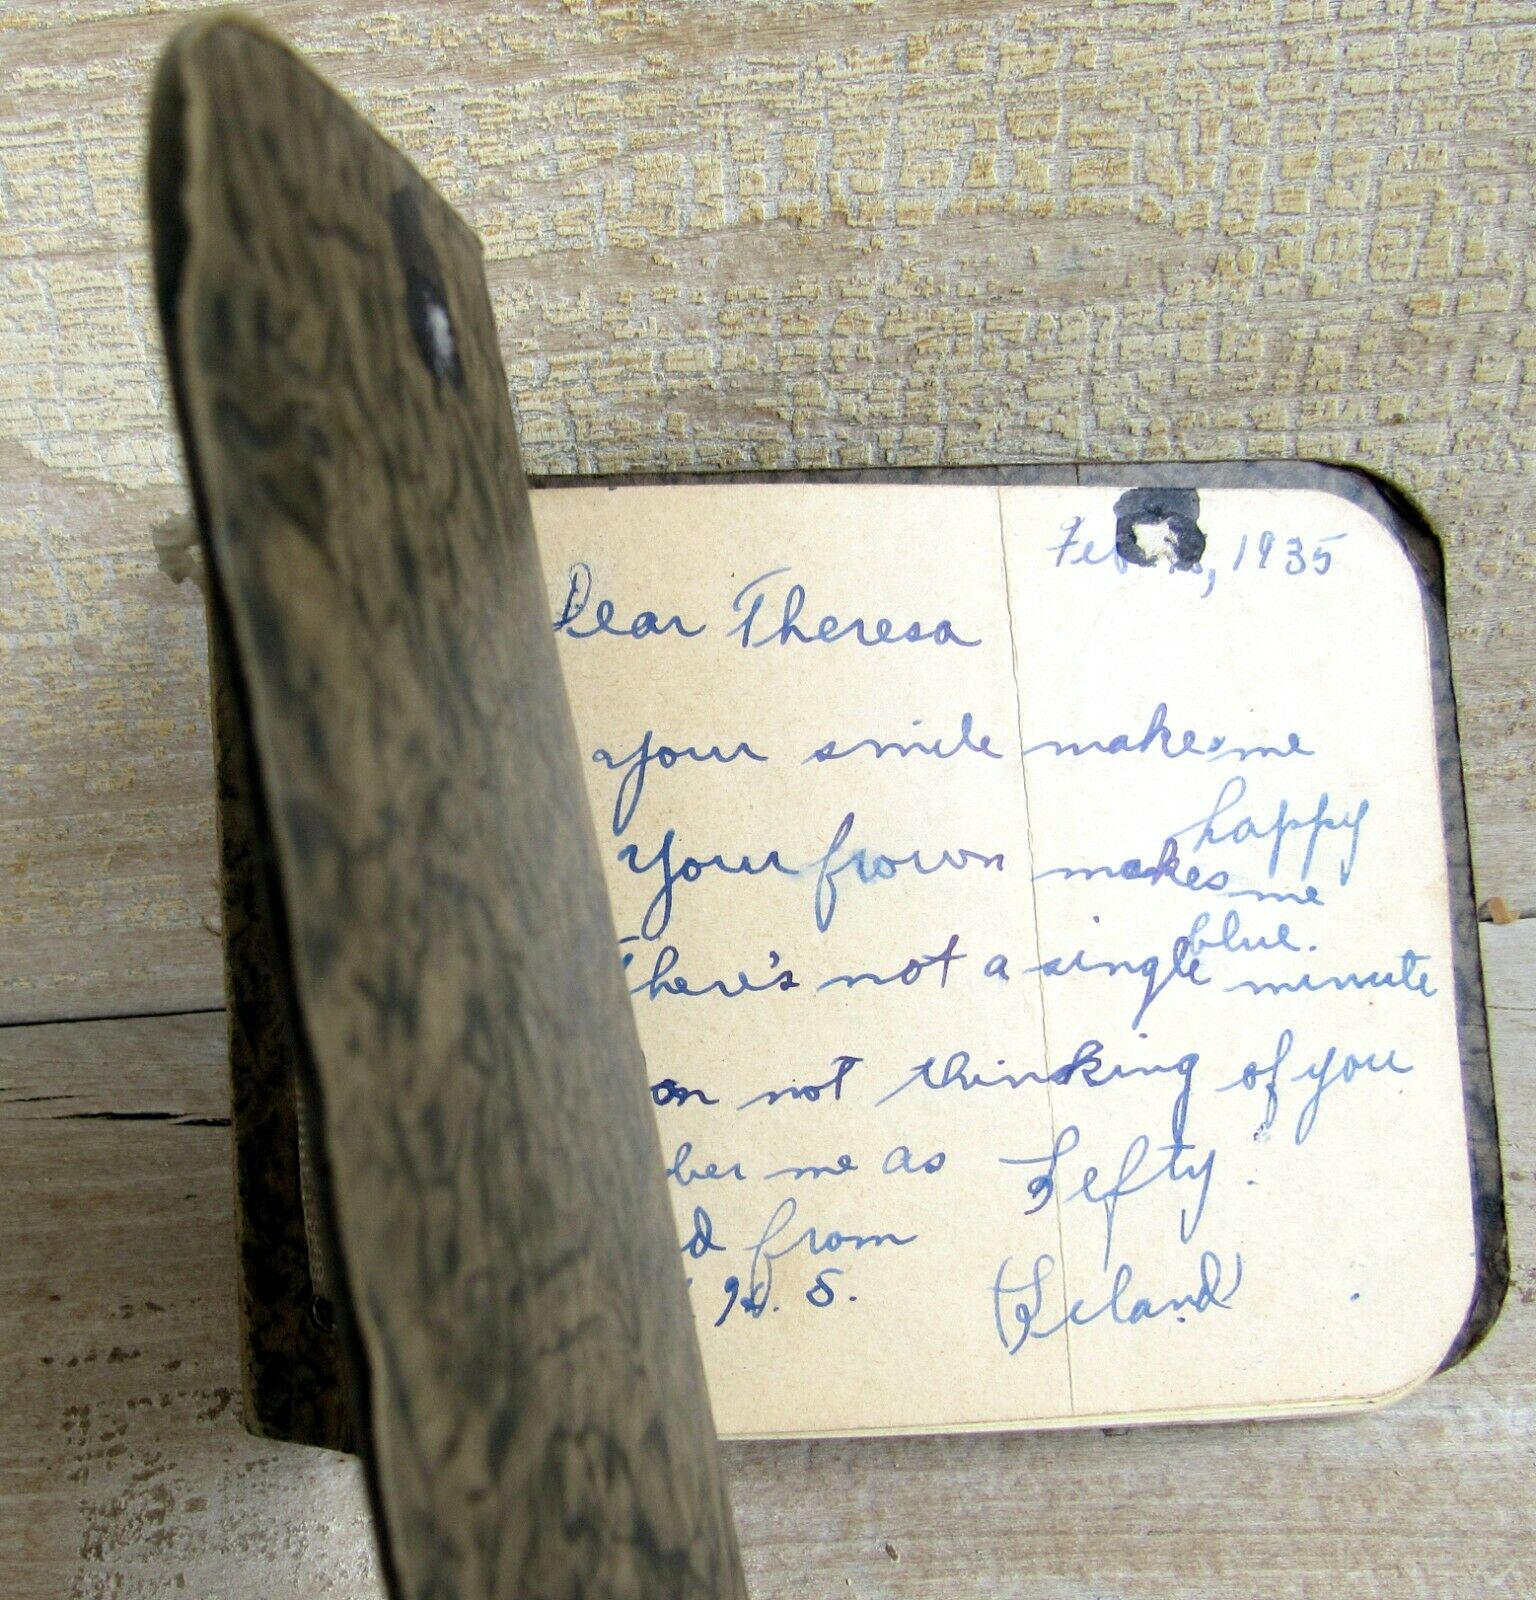 1935
Dear Theresa
Your smile makes me
happy
Your frown makes me
blue.
There's not a single minute
not thinking of you
me as Lefty.
from
(Leland)